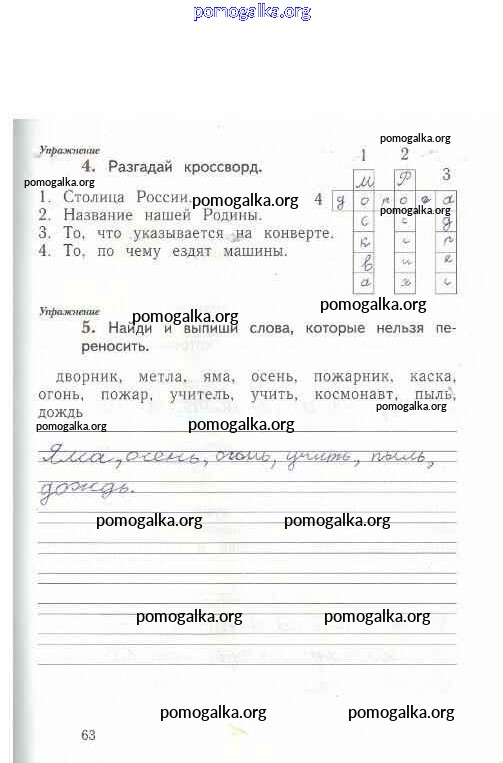 pomogalka.org
Упражнение
4. Разгадай кроссворд.
pomogalka.org
pomogalka.org
1 2 3
1. Столица России.
2. Название нашей Родины.
3. То, что указывается на конверте.
4. То, по чему ездят машины.
м Р
4 дорога
с с д
к с р
в и е
а я с
pomogalka.org
pomogalka.org
Упражнение
5. Найди и выпиши слова, которые нельзя пе-
реносить.
pomogalka.org
дворник, метла, яма, осень, пожарник, каска,
огонь, пожар, учитель, учить, космонавт, пыль,
дождь
pomogalka.org
pomogalka.org
Яма, осень, огонь, учить, пыль,
дождь.
pomogalka.org pomogalka.org
pomogalka.org pomogalka.org
pomogalka.org pomogalka.org
63